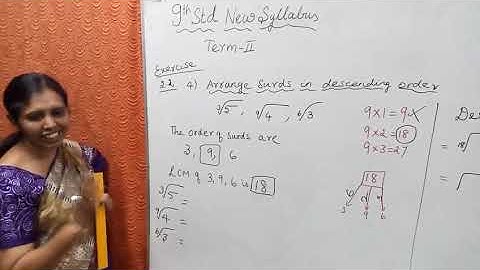 9th Std New Syllabus
Term-II
Exercise
2.2 4) Arrange Surds in descending order
³√5, ⁹√4, ⁶√3
The order of surds are
3, 9, 6
LCM of 3, 9, 6 is 18
³√5 =
⁹√4 =
⁶√3 =
9×1=9×
9×2=18
9×3=27
18
6 2
3 9 6
Des
= 18√
= √